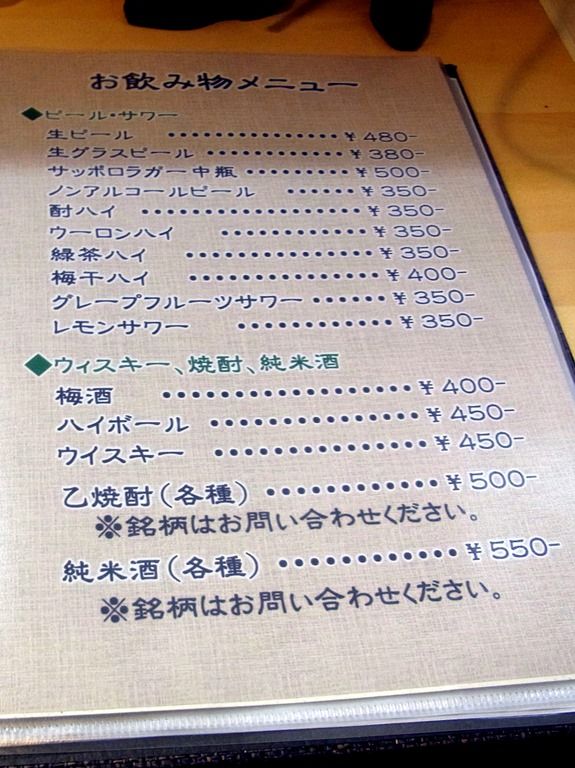 お飲み物メニュー
◆ビール・サワー
生ビール ・・・・・・・・・・・・・・・ ¥480-
生グラスビール ・・・・・・・・・・・・ ¥380-
サッポロラガー中瓶 ・・・・・・・・・ ¥500-
ノンアルコールビール ・・・・・・ ¥350-
酎ハイ ・・・・・・・・・・・・・・・・・・・ ¥350-
ウーロンハイ ・・・・・・・・・・・・ ¥350-
緑茶ハイ ・・・・・・・・・・・・・・・・ ¥350-
梅干ハイ ・・・・・・・・・・・・・・・・ ¥400-
グレープフルーツサワー ・・・・・・ ¥350-
レモンサワー ・・・・・・・・・・・・ ¥350-
◆ウィスキー、焼酎、純米酒
梅酒 ・・・・・・・・・・・・・・・・・・ ¥400-
ハイボール ・・・・・・・・・・・・・・・ ¥450-
ウイスキー ・・・・・・・・・・・・・・・ ¥450-
乙焼酎(各種) ・・・・・・・・・・・・ ¥500-
※銘柄はお問い合わせください。
純米酒(各種) ・・・・・・・・・・・・ ¥550-
※銘柄はお問い合わせください。